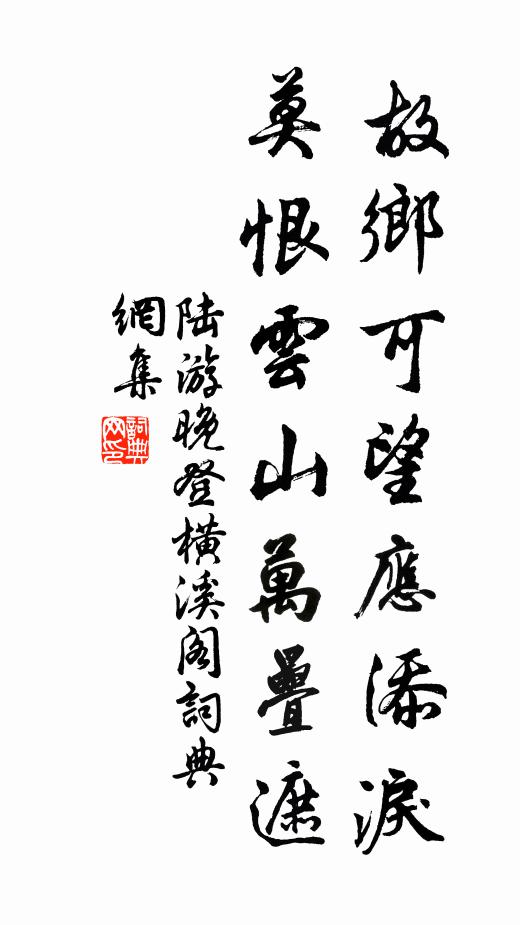 故鄉可望應添淚
莫恨雲山萬疊遮
陸游晚登橫溪閣詞典
網集
詞典
网印